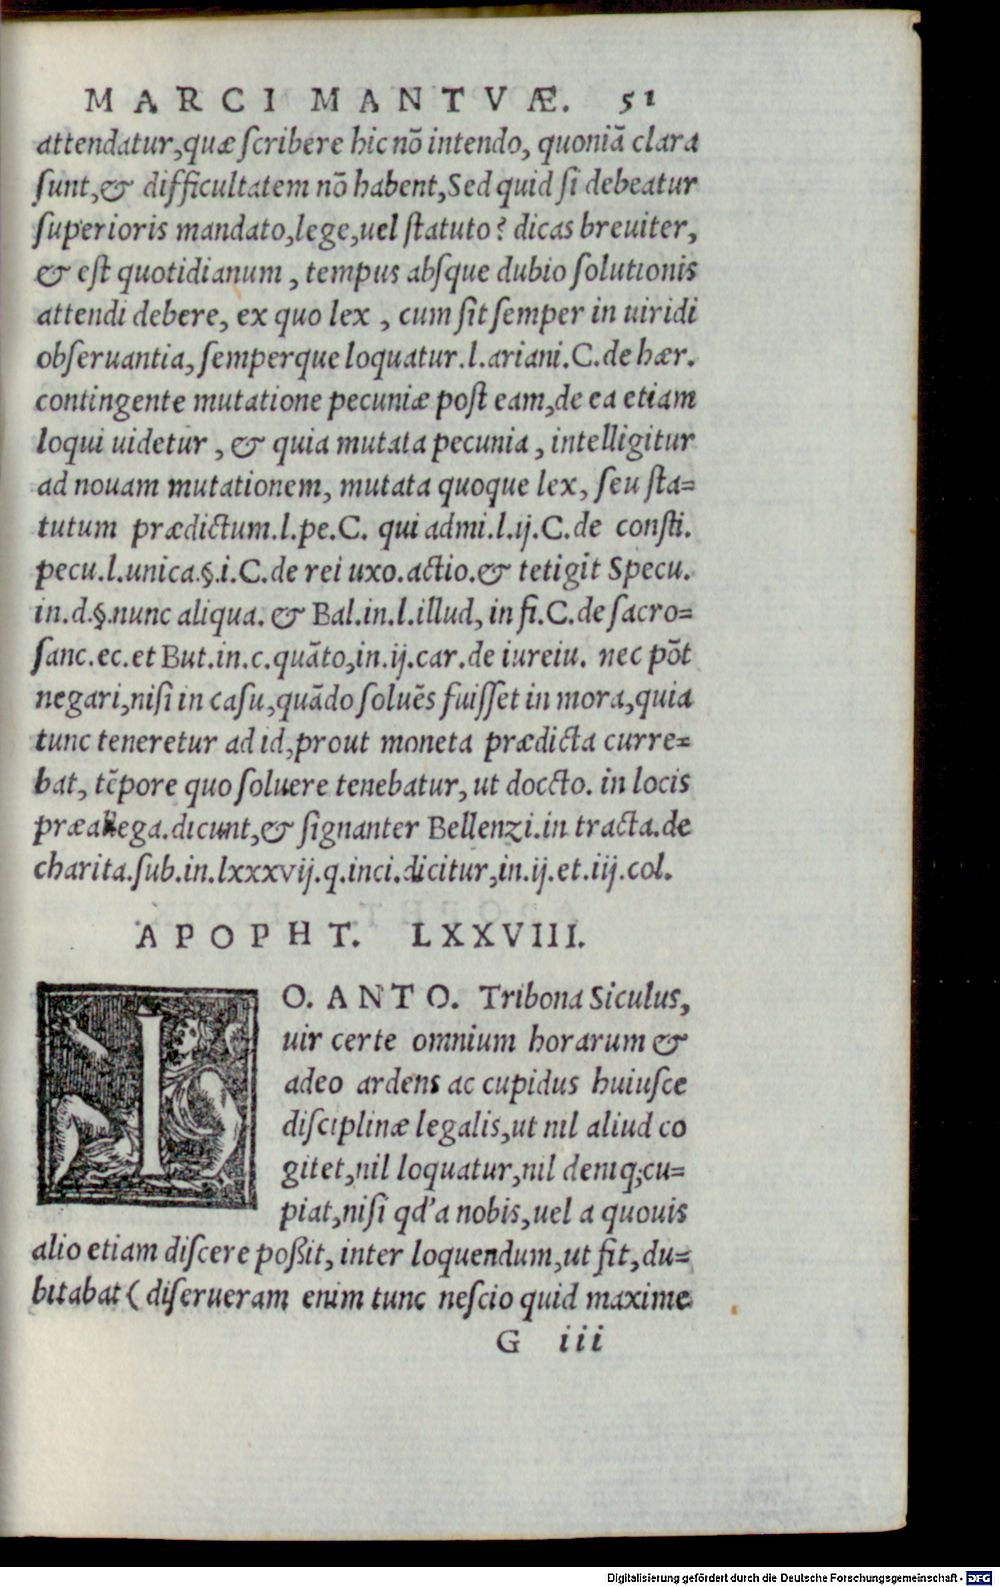 MARCI MANTVÆ. 51
attendatur,quæ ſcribere hic nō intendo, quoniā clara
ſunt,& difficultatem nō habent,Sed quid ſi debeatur
ſuperioris mandato,lege,uel ſtatuto? dicas breuiter,
& eſt quotidianum, tempus abſque dubio ſolutionis
attendi debere, ex quo lex, cum ſit ſemper in uiridi
obſeruantia, ſemperque loquatur.l.ariani.C.de hær.
contingente mutatione pecuniæ poſt eam,de ea etiam
loqui uidetur, & quia mutata pecunia, intelligitur
ad nouam mutationem, mutata quoque lex, ſeu ſta=
tutum prædictum.l.pe.C. qui admi.l.ij.C.de conſti.
pecu.l.unica.§.i.C.de rei uxo.actio.& tetigit Specu.
in.d.§.nunc aliqua. & Bal.in.l.illud, in fi.C.de ſacro=
ſanc.ec.et But.in.c.quāto,in.ij.car.de iureiu. nec pōt
negari,niſi in caſu,quādo ſoluēs fuiſſet in mora,quia
tunc teneretur ad id,prout moneta prædicta curre=
bat, tēpore quo ſoluere tenebatur, ut doccto. in locis
præallega.dicunt,& ſignanter Bellenzi.in tracta.de
charita.ſub.in.lxxxvij.q.inci.dicitur,in.ij.et.iij.col.
APOPHT. LXXVIII.
IO. ANTO. Tribona Siculus,
uir certe omnium horarum &
adeo ardens ac cupidus huiuſce
diſciplinæ legalis,ut nil aliud co
gitet,nil loquatur,nil deniq;cu=
piat,niſi qd' a nobis,uel a quouis
alio etiam diſcere poßit, inter loquendum,ut fit,du=
bitabat (diſerueram enim tunc neſcio quid maxime
G iii
Digitalisierung gefördert durch die Deutsche Forschungsgemeinschaft - DFG